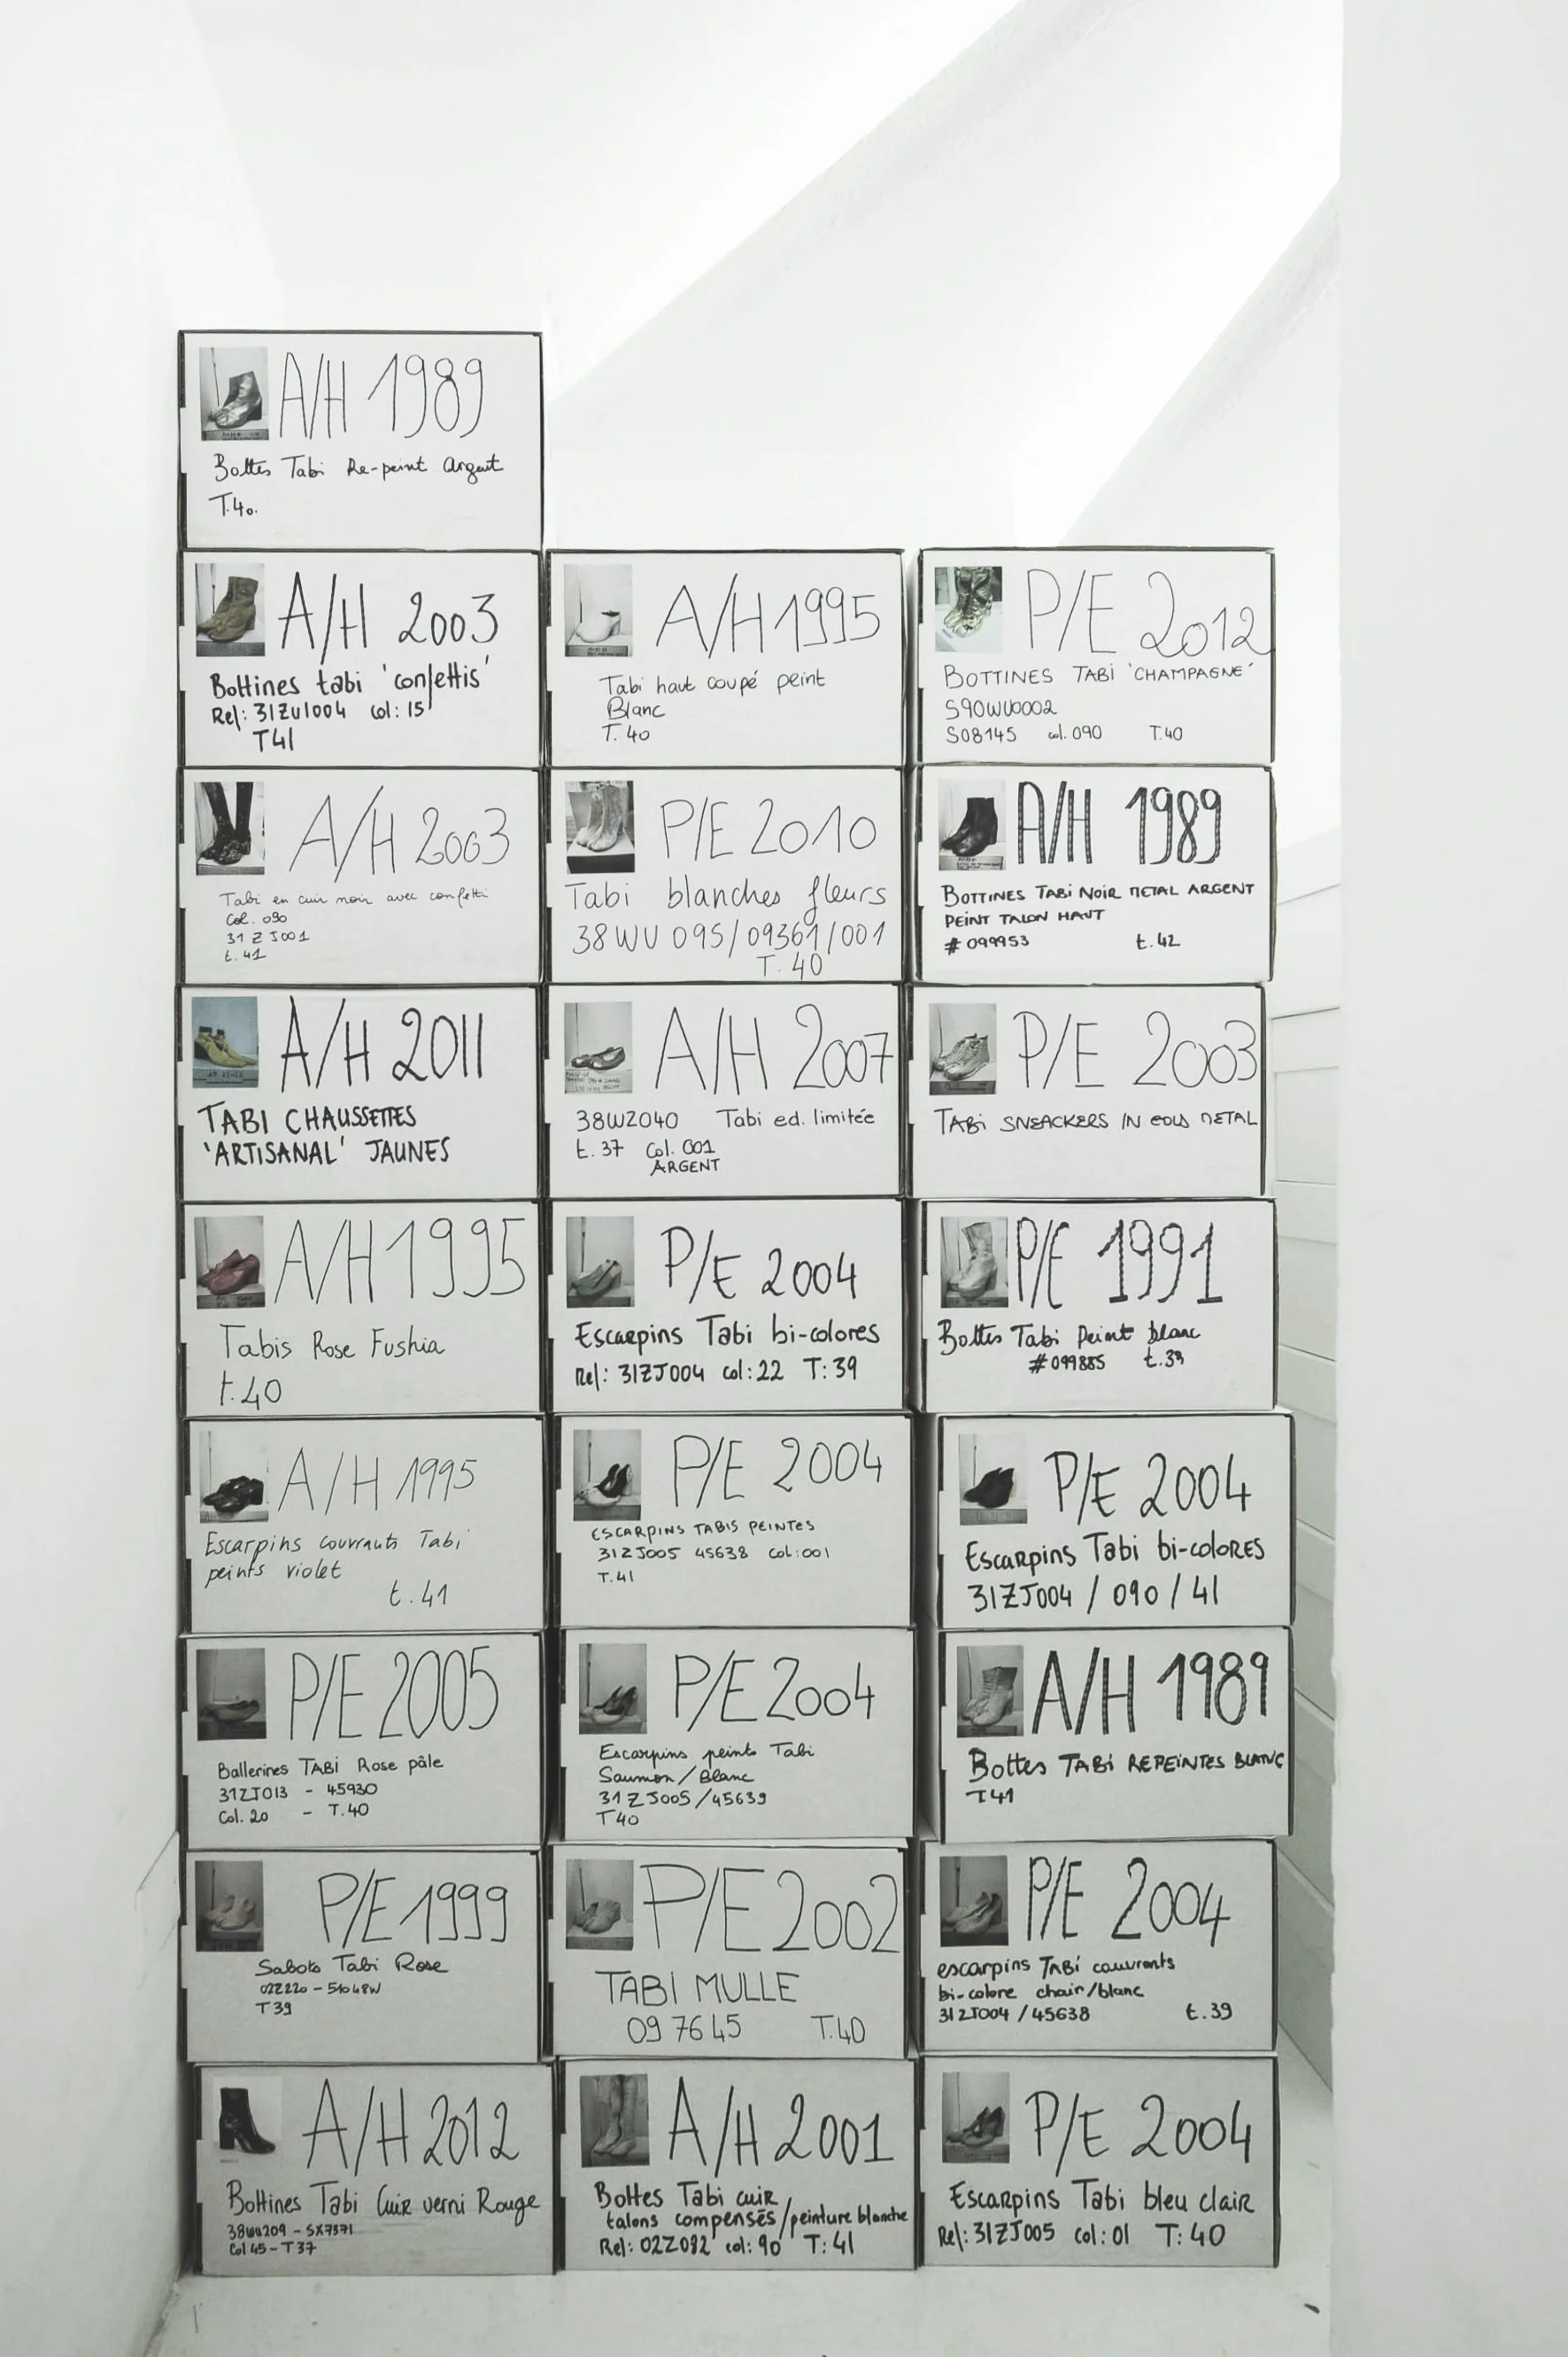 A/H 1989
Bottes Tabi Re-peint Argent
T.40.
A/H 2003
Bottines tabi 'confettis'
Ref: 31ZU1004 col: 15
T41
A/H 1995
Tabi haut coupé peint
Blanc
T. 40
P/E 2012
BOTTINES TABI 'CHAMPAGNE'
S90WU0002
S08145 col. 090 T.40
A/H 2003
Tabi en cuir noir avec confetti
Col. 090
31 Z J001
t. 41
P/E 2010
Tabi blanches fleurs
38WU 095/09361/001
T. 40
A/H 1989
BOTTINES TABI NOIR METAL ARGENT
PEINT TALON HAUT
# 099953 t.42
A/H 2011
TABI CHAUSSETTES
'ARTISANAL' JAUNES
A/H 2007
38WZ040 Tabi ed. limitée
t. 37 Col. 001
ARGENT
P/E 2003
TABI SNEACKERS IN GOLD METAL
A/H 1995
Tabis Rose Fushia
t.40
P/E 2004
Escarpins Tabi bi-colores
Ref: 31ZJ004 col:22 T:39
P/E 1991
Bottes Tabi Peint blanc
#099885 t.39
A/H 1995
Escarpins couvrants Tabi
peints violet
t.41
P/E 2004
ESCARPINS TABIS PEINTES
31ZJ005 45638 Col:001
T.41
P/E 2004
Escarpins Tabi bi-colores
31ZJ004 / 090 / 41
P/E 2005
Ballerines TABI Rose pâle
31ZJ013 - 45930
Col. 20 - T.40
P/E 2004
Escarpins peints Tabi
Saumon/Blanc
31 Z J005 /45639
T40
A/H 1989
Bottes TABI REPEINTES BLANC
T41
P/E 1999
Sabots Tabi Rose
02Z220 - 51048W
T39
P/E 2002
TABI MULLE
09 76 45 T.40
P/E 2004
escarpins TABI couvrants
bi-colore chair/blanc
31ZJ004 / 45638 t.39
A/H 2012
Bottines Tabi Cuir verni Rouge
38WU209 - SX7571
Col 45 - T37
A/H 2001
Bottes Tabi cuir
talons compensés/peinture blanche
Ref: 02Z082 col: 90 T: 41
P/E 2004
Escarpins Tabi bleu clair
Ref: 31ZJ005 col: 01 T: 40